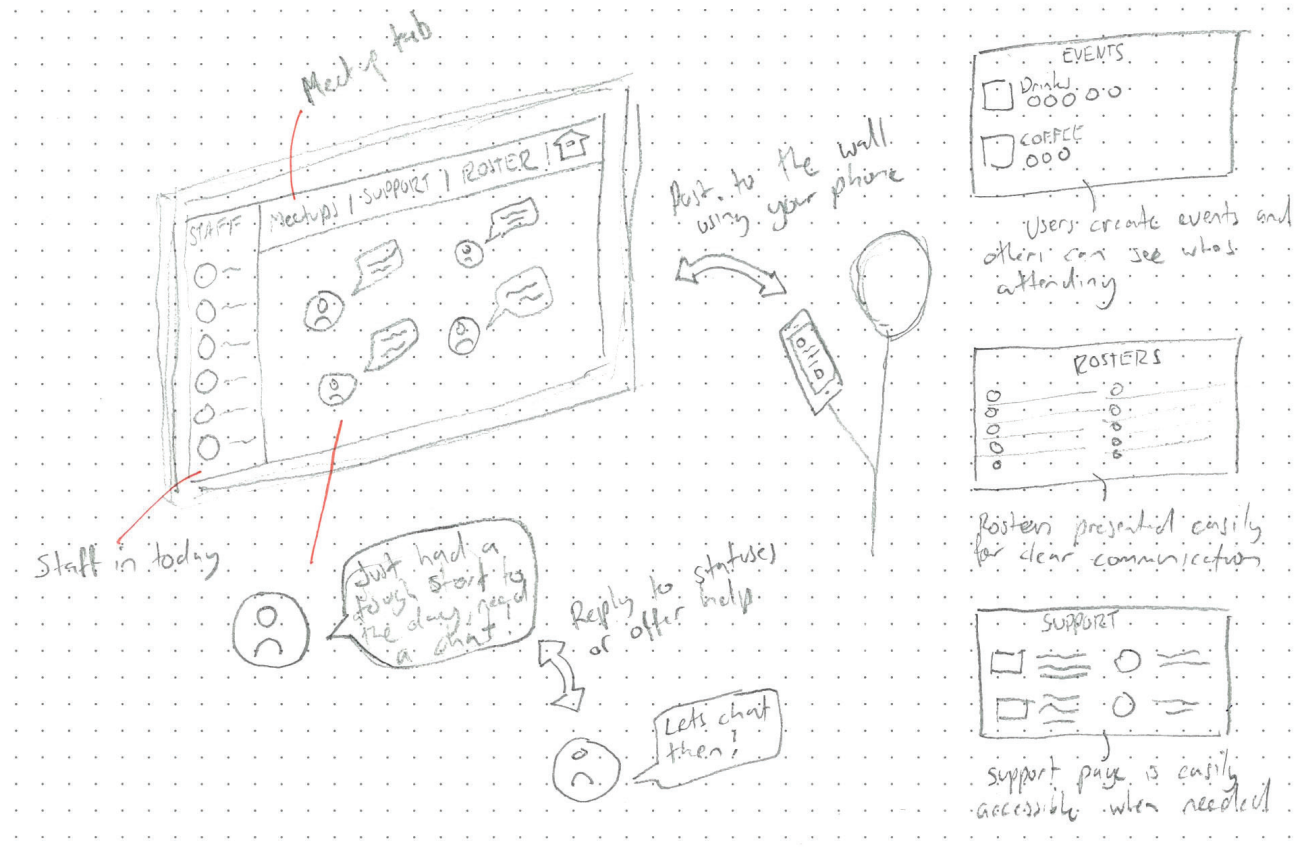 Meetup tab
Meetups / SUPPORT / ROSTER /
STAFF
Staff in today
Just had a
tough start to
the day, need
a chat!
Reply to statuses
or offer help
Lets chat
then!
Post to the wall
using your phone
EVENTS
Drinks
COFFEE
Users create events and
others can see whos
attending
ROSTERS
Rosters presented easily
for clear communication
SUPPORT
support page is easily
accessible when needed